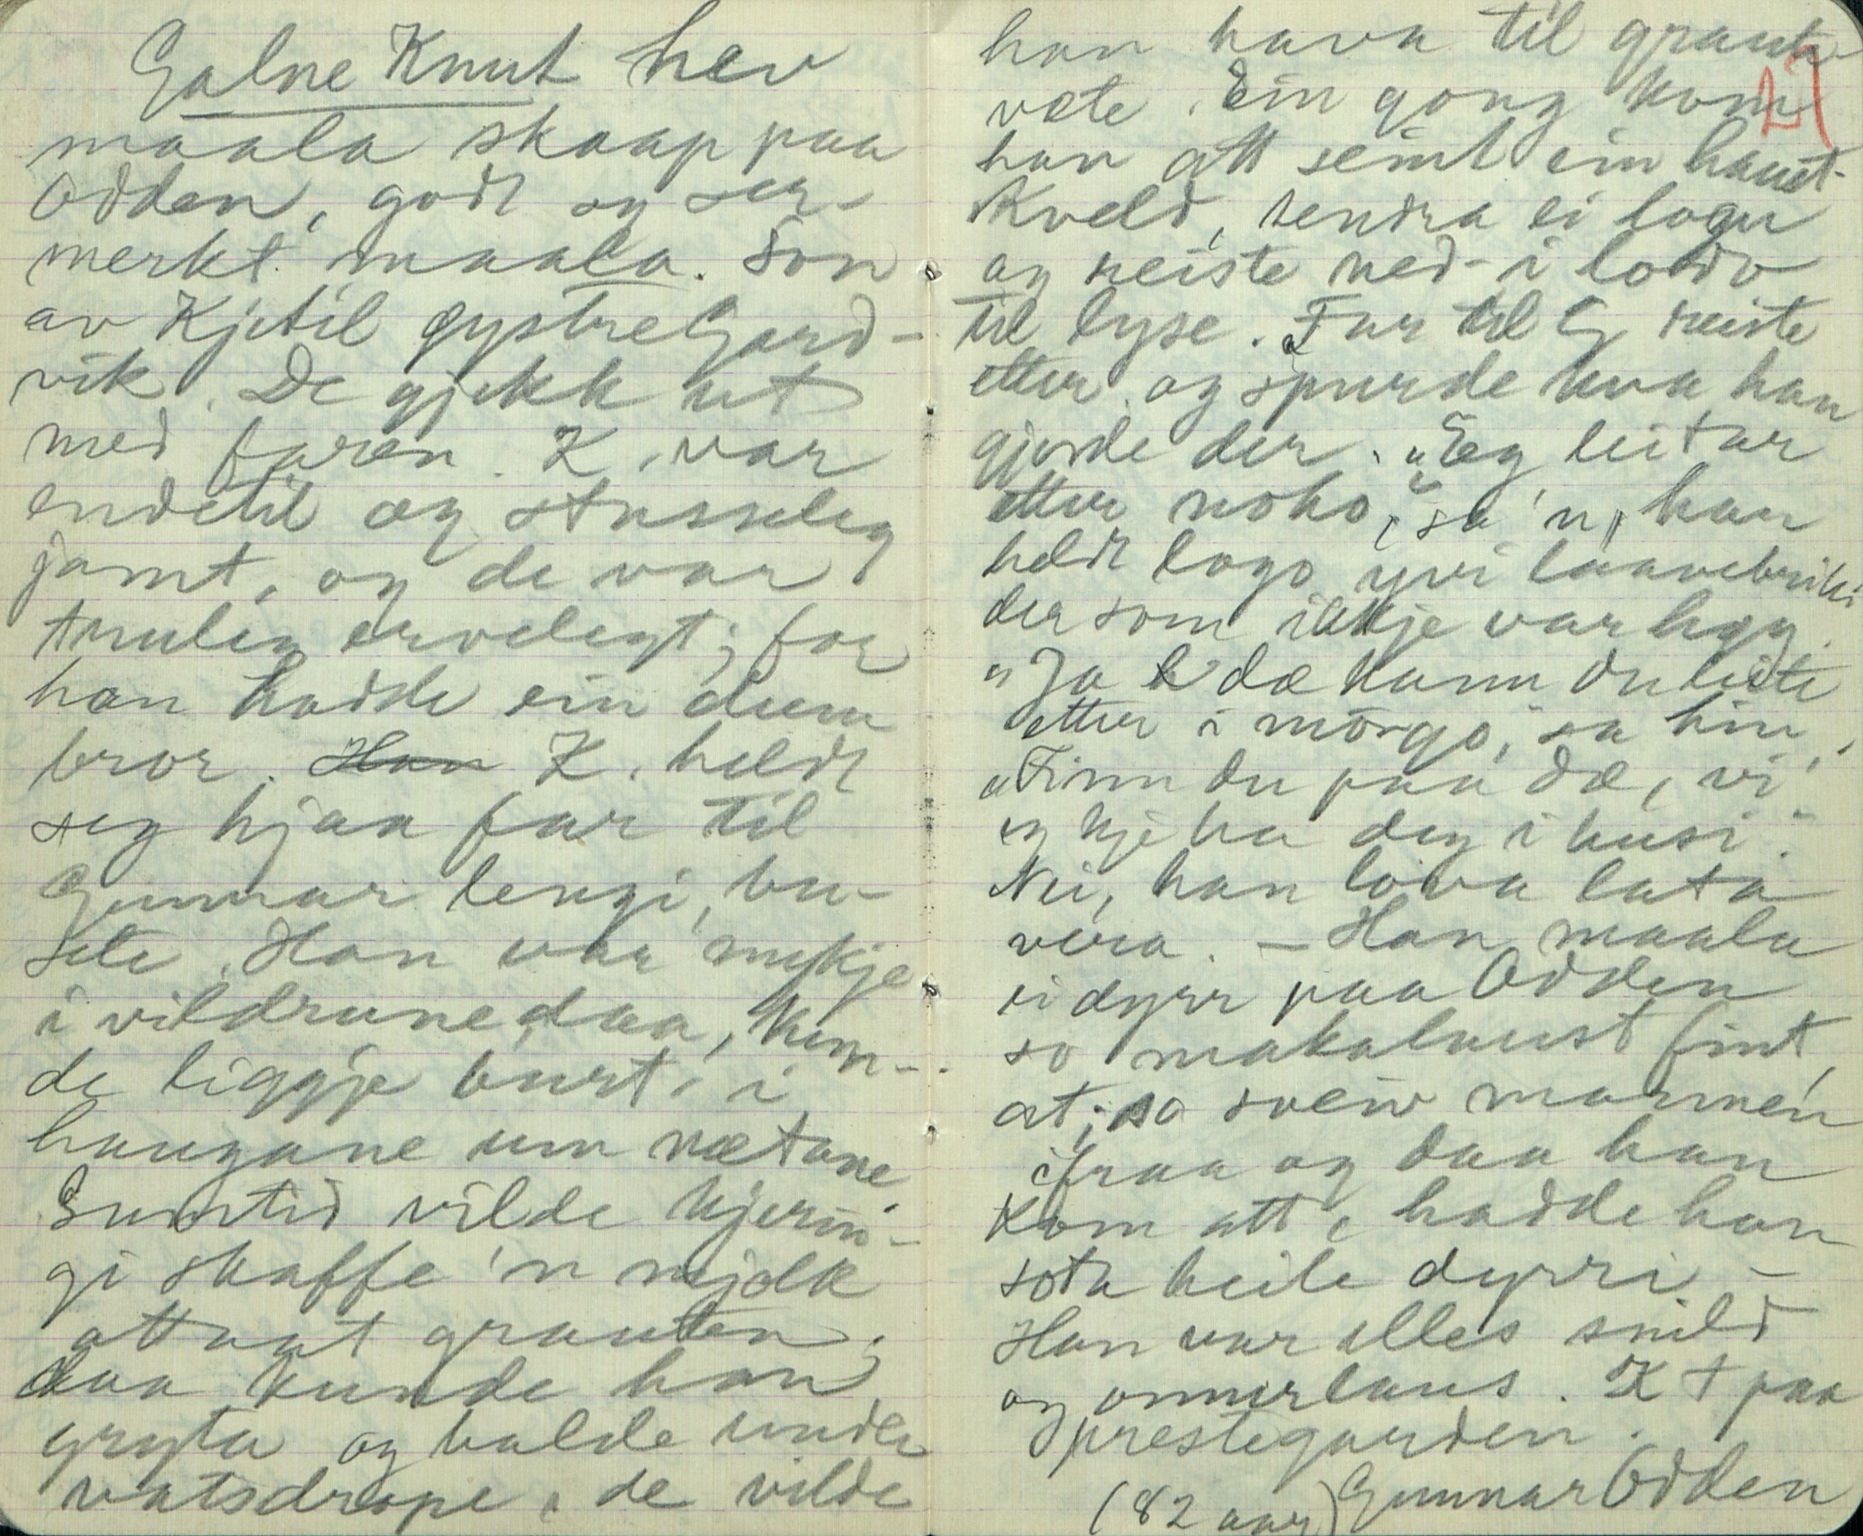 Galne Knut hev
maala skaap paa
Odden, godt og ser-
merkt maala. Son
av Kjetil Øystre Gard-
vik. De gjekk ut
med faren. K. var
endetil og stusseleg
jamt, og de var
truleg ervelegt; for
han hadde ein dum
bror. Han K. heldt
seg hjaa far til
Gunnar lengi, bu-
sete. Han var mykje
i villdrune daa, kun-
de liggje burt i
haugane um nætane.
Sumtid vilde kjerin-
gi skaffe 'n mjølk
attaat grauten;
daa kunde han
gryta og halde under
vatsdrope, de vilde
han hava til graut-
væte. Ein gong kom
han att seint ein haust-
kveld, tendra ei logu
og reiste ned-i lodo
til lyse. Far til G. reiste
etter og spurde kva han
gjorde der. "Eg leitar
etter noko," sa 'n, han
heldt logo yvi laavebriki
der som ikkje var høy.
"Ja dæ kann du leite
etter i mórgó," sa hin,
"Finn du paa dæ, vi'
eg kje ha deg i husi".
Nei, han lova lata
vera. — Han maala
ei dyrr paa Odden
so makalaust fint,
at; so sveiv mannen
ifraa og daa han
kom att, hadde han
sota heile dyrri —
Han var elles snild
og onnorlaus. K † paa
prestegarden.
(82 aar) Gunnar Odden
27